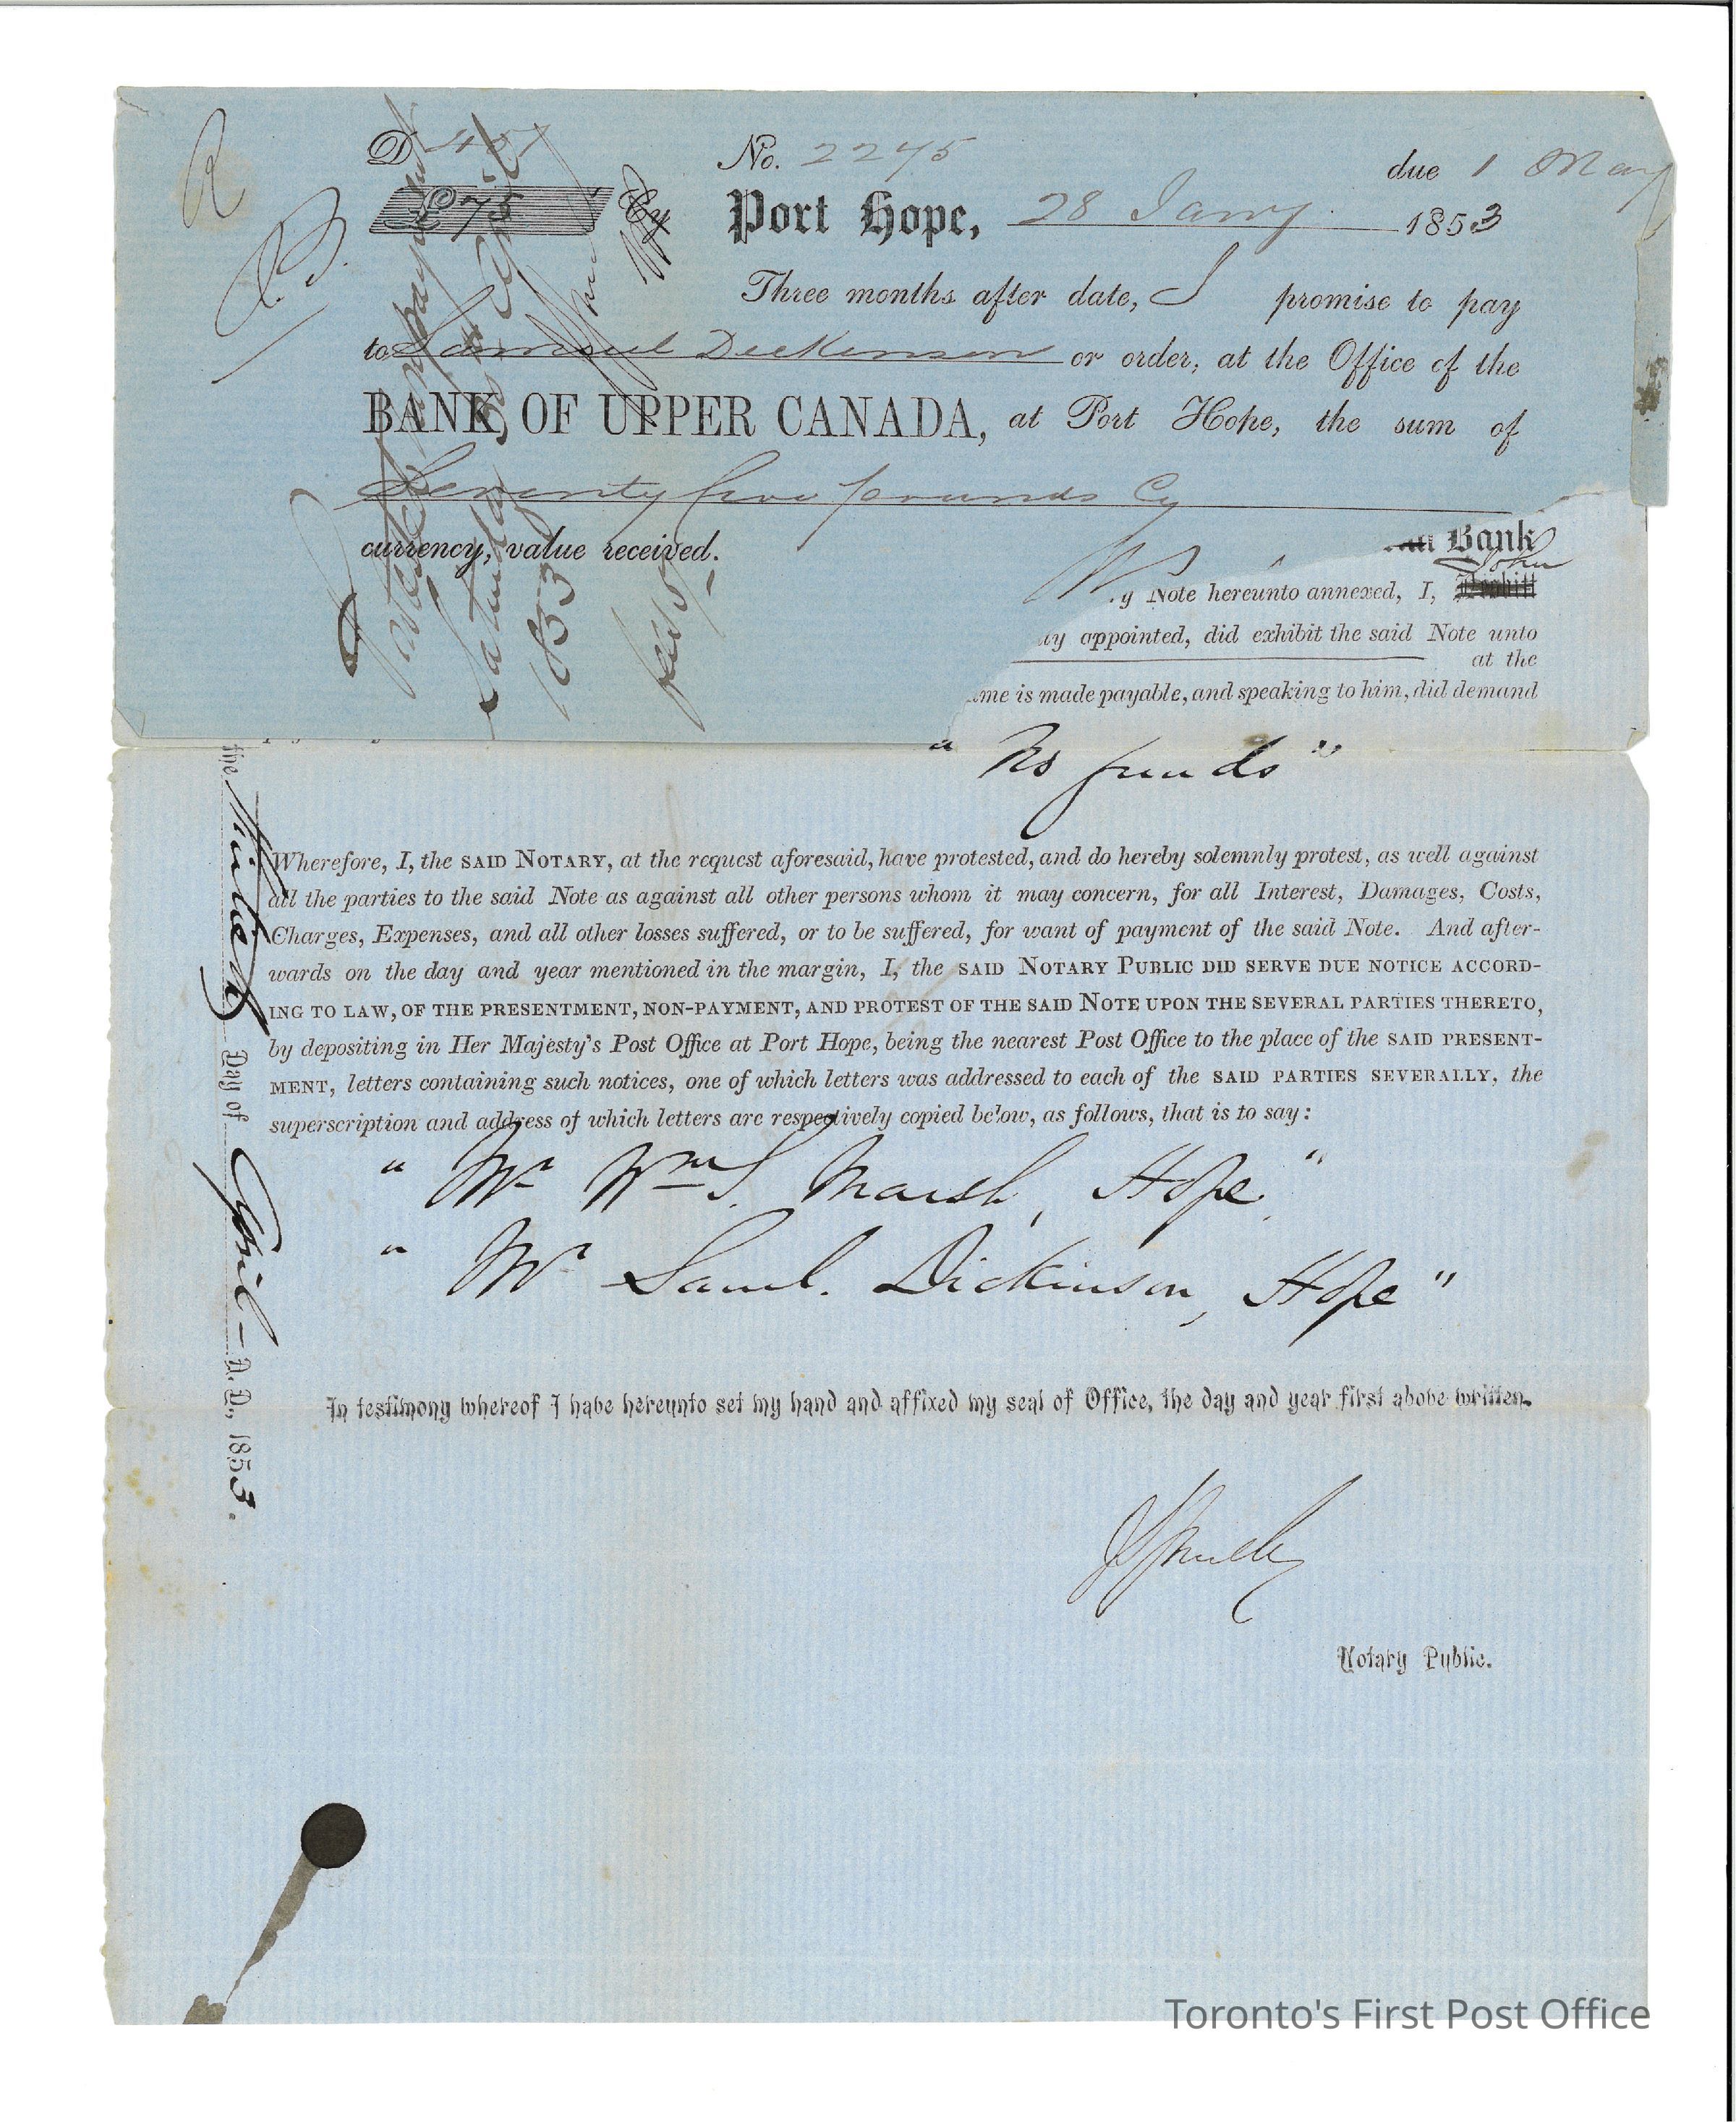 R
B.
D 457 No. 2275 due 1 May
£75 Cy Port Hope, 28 Jany. 1853
Three months after date, I promise to pay
to Samuel Dickinson or order, at the Office of the
BANK OF UPPER CANADA, at Port Hope, the sum of
Seventy five pounds Cy
currency, value received.
Saturday 30 April
1853
Bank
John
y Note hereunto annexed, I,
appointed, did exhibit the said Note unto
at the
me is made payable, and speaking to him, did demand
" No funds "
Wherefore, I, the SAID NOTARY, at the request aforesaid, have protested, and do hereby solemnly protest, as well against
all the parties to the said Note as against all other persons whom it may concern, for all Interest, Damages, Costs,
Charges, Expenses, and all other losses suffered, or to be suffered, for want of payment of the said Note. And after-
wards on the day and year mentioned in the margin, I, the SAID NOTARY PUBLIC DID SERVE DUE NOTICE ACCORD-
ING TO LAW, OF THE PRESENTMENT, NON-PAYMENT, AND PROTEST OF THE SAID NOTE UPON THE SEVERAL PARTIES THERETO,
by depositing in Her Majesty's Post Office at Port Hope, being the nearest Post Office to the place of the SAID PRESENT-
MENT, letters containing such notices, one of which letters was addressed to each of the SAID PARTIES SEVERALLY, the
superscription and address of which letters are respectively copied below, as follows, that is to say:
" Mr Wm S. Marsh, Hope. "
" Mr Saml. Dickinson, Hope "
In testimony whereof I have hereunto set my hand and affixed my seal of Office, the day and year first above written.
Notary Public.
the Thirtieth Day of April - A. D., 1853.
Toronto's First Post Office